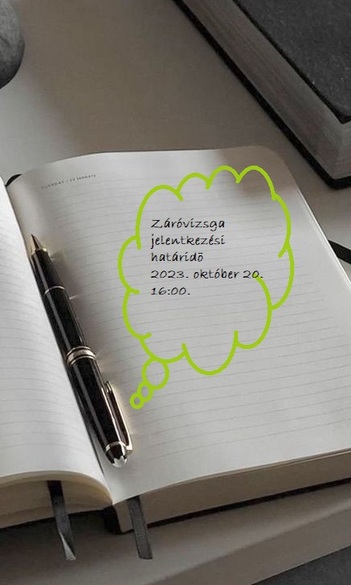 Záróvizsga
jelentkezési
határidő
2023. október 20.
16:00.